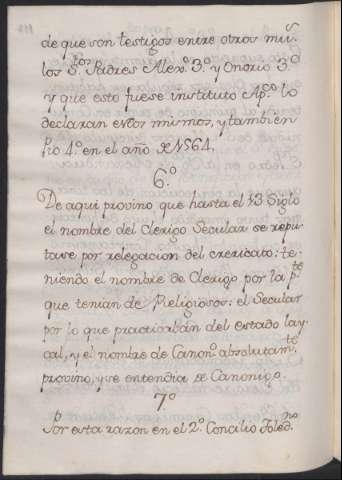 de que son testigos entre otros mu.s
los S.tos Padres Alex.o 3.o y Onorio 3.o
y que esto fuese instituto Ap.co lo
declaran estos mismos, y tambien
Pio 4.o en el año de 1564.
6.o
De aqui provino que hasta el 13 Siglo
el nombre del Clerigo Secular se repu-
tase por relegacion del clericato: te-
niendo el nombre de Clerigo por la p.te
que tenian de Religiosos: el Secular
por lo que practicában del estado lay-
cal, y el nombre de Canon.o absolutam.te
provino, y se entendia de Canonigo.
7.o
Por esta razon en el 2.o Concilio Toled.no